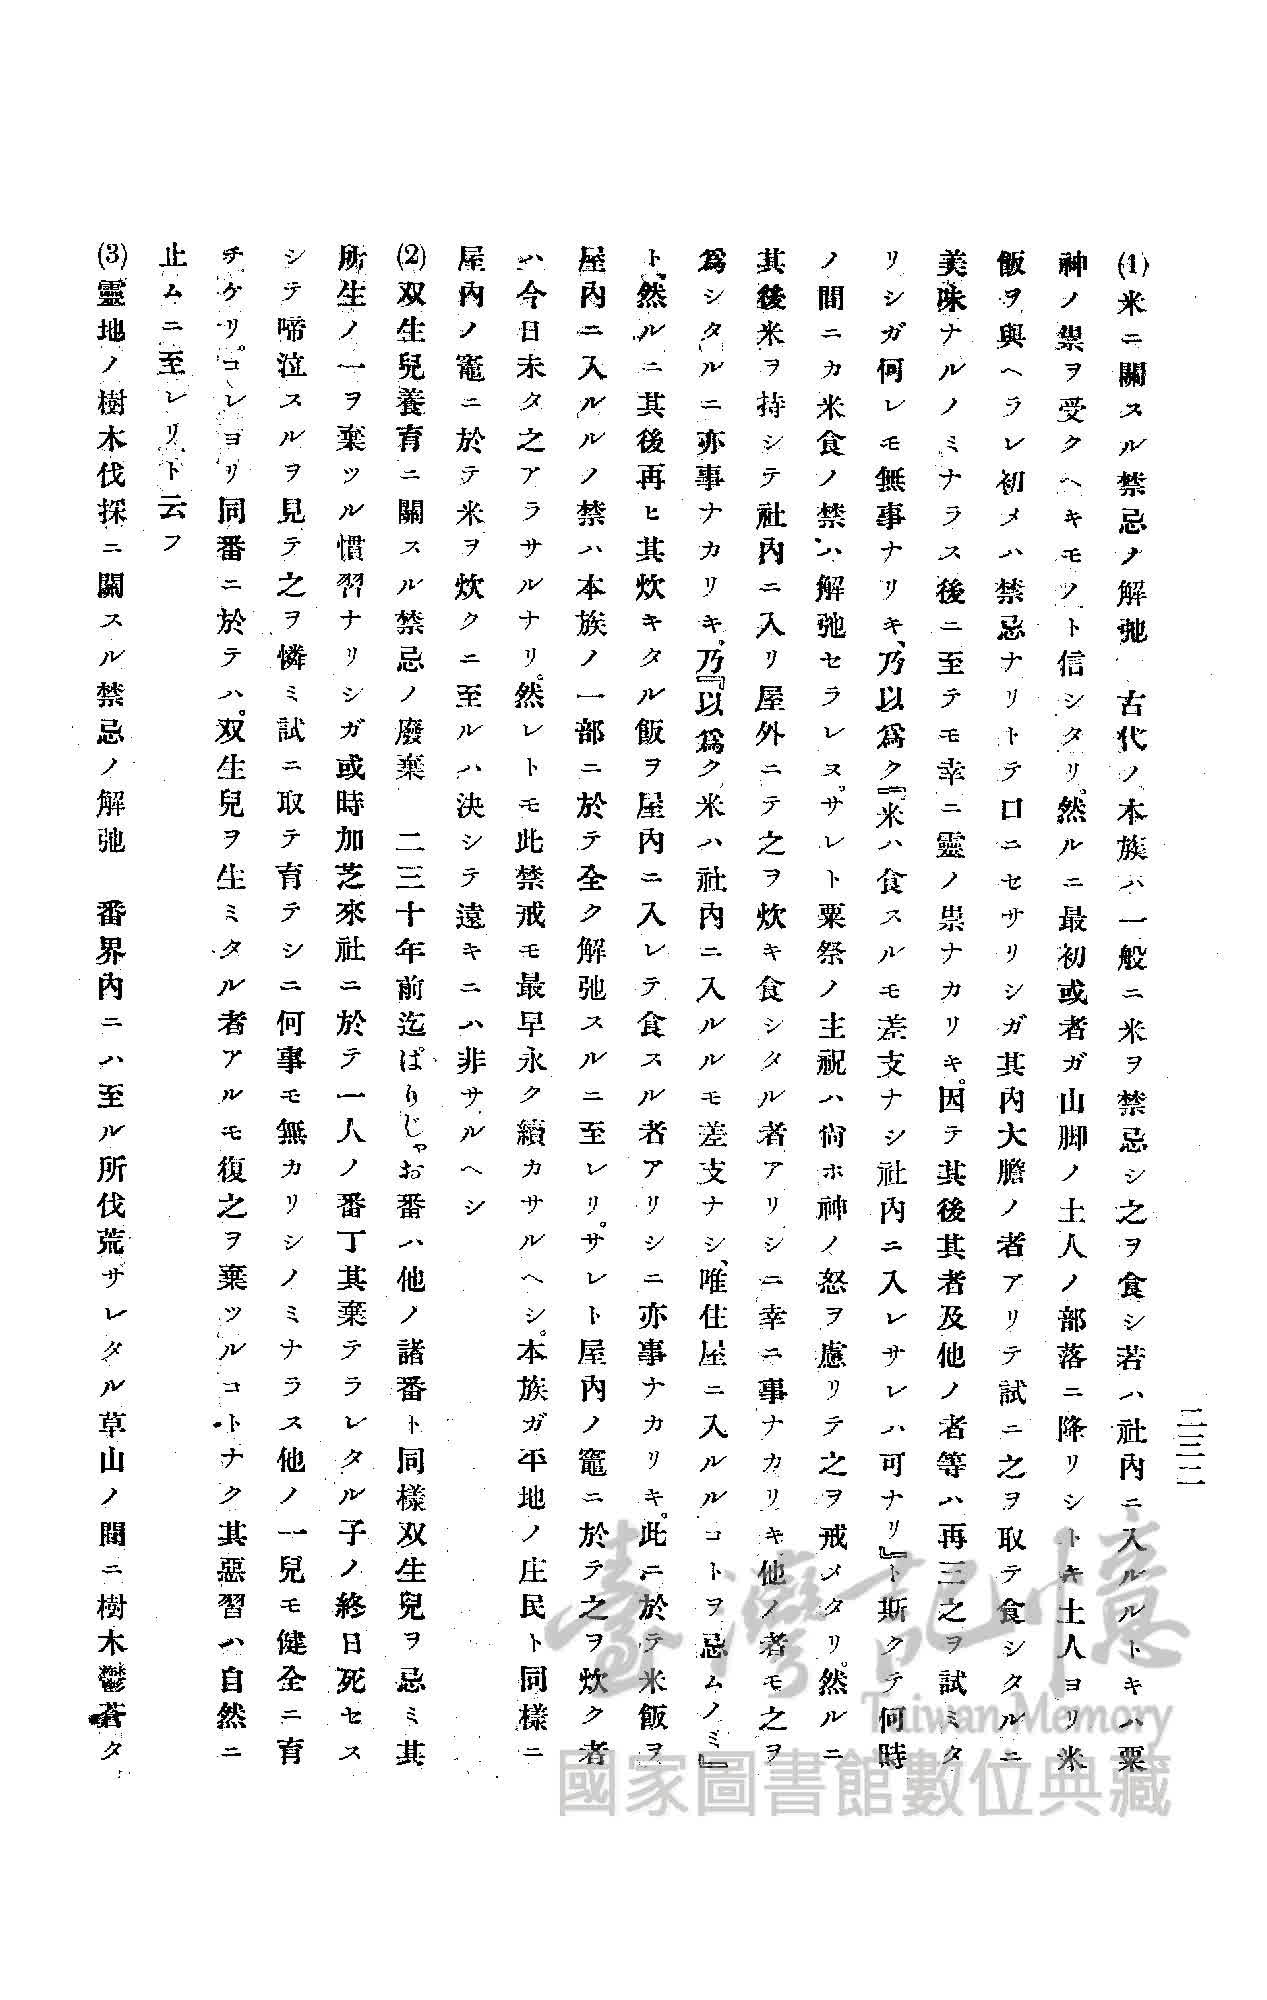 二三二
(1)米ニ關スル禁忌ノ解弛　古代ノ本族ハ一般ニ米ヲ禁忌シ之ヲ食シ若ハ社內ニ入ルルトキハ粟
神ノ祟ヲ受クヘキモノト信シタリ。然ルニ最初或者ガ山脚ノ土人ノ部落ニ降リシトキ土人ヨリ米
飯ヲ與ヘラレ初メハ禁忌ナリトテ口ニセサリシガ其內大膽ノ者アリテ試ニ之ヲ取テ食シタルニ
美味ナルノミナラス後ニ至テモ幸ニ靈ノ祟ナカリキ。因テ其後其者及他ノ者等ハ再三之ヲ試ミタ
リシガ何レモ無事ナリキ、乃以爲ク『米ハ食スルモ差支ナシ社內ニ入レサレハ可ナリ』ト斯クテ何時
ノ間ニカ米食ノ禁ハ解弛セラレヌ。サレト粟祭ノ主祝ハ尙ホ神ノ怒ヲ慮リテ之ヲ戒メタリ。然ルニ
其後米ヲ持シテ社內ニ入リ屋外ニテ之ヲ炊キ食シタル者アリシニ幸ニ事ナカリキ他ノ者モ之ヲ
爲シタルニ亦事ナカリキ、乃『以爲ク米ハ社內ニ入ルルモ差支ナシ、唯住屋ニ入ルルコトヲ忌ムノミ』
ト、然ルニ其後再ヒ其炊キタル飯ヲ屋內ニ入レテ食スル者アリシニ亦事ナカリキ。此ニ於テ米飯ヲ
屋內ニ入ルルノ禁ハ本族ノ一部ニ於テ全ク解弛スルニ至レリ。サレト屋內ノ竈ニ於テ之ヲ炊ク者
ハ今日未タ之アラサルナリ。然レトモ此禁戒モ最早永ク續カサルヘシ。本族ガ平地ノ庄民ト同樣ニ
屋內ノ竈ニ於テ米ヲ炊クニ至ルハ決シテ遠キニハ非サルヘシ
(2)双生兒養育ニ關スル禁忌ノ廢棄　二三十年前迄ぱりじゃお番ハ他ノ諸番ト同樣双生兒ヲ忌ミ其
所生ノ一ヲ棄ツル慣習ナリシガ或時加芝來社ニ於テ一人ノ番丁其棄テラレタル子ノ終日死セス
シテ啼泣スルヲ見テ之ヲ憐ミ試ニ取テ育テシニ何事モ無カリシノミナラス他ノ一兒モ健全ニ育
チケリ。コレヨリ同番ニ於テハ。双生兒ヲ生ミタル者アルモ復之ヲ棄ツルコトナク其惡習ハ自然ニ
止ムニ至レリト云フ
(3)靈地ノ樹木伐採ニ關スル禁忌ノ解弛　番界內ニハ至ル所伐荒サレタル草山ノ間ニ樹木鬱蒼タ
臺灣記憶
Taiwan Memory
國家圖書館數位典藏